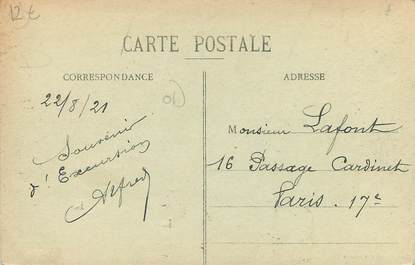 12€
CARTE POSTALE
CORRESPONDANCE
ADRESSE
22/8/21
Souvenir
d'Excursion
Alfred
Monsieur Lafont
16 Passage Cardinet
Paris. 17e